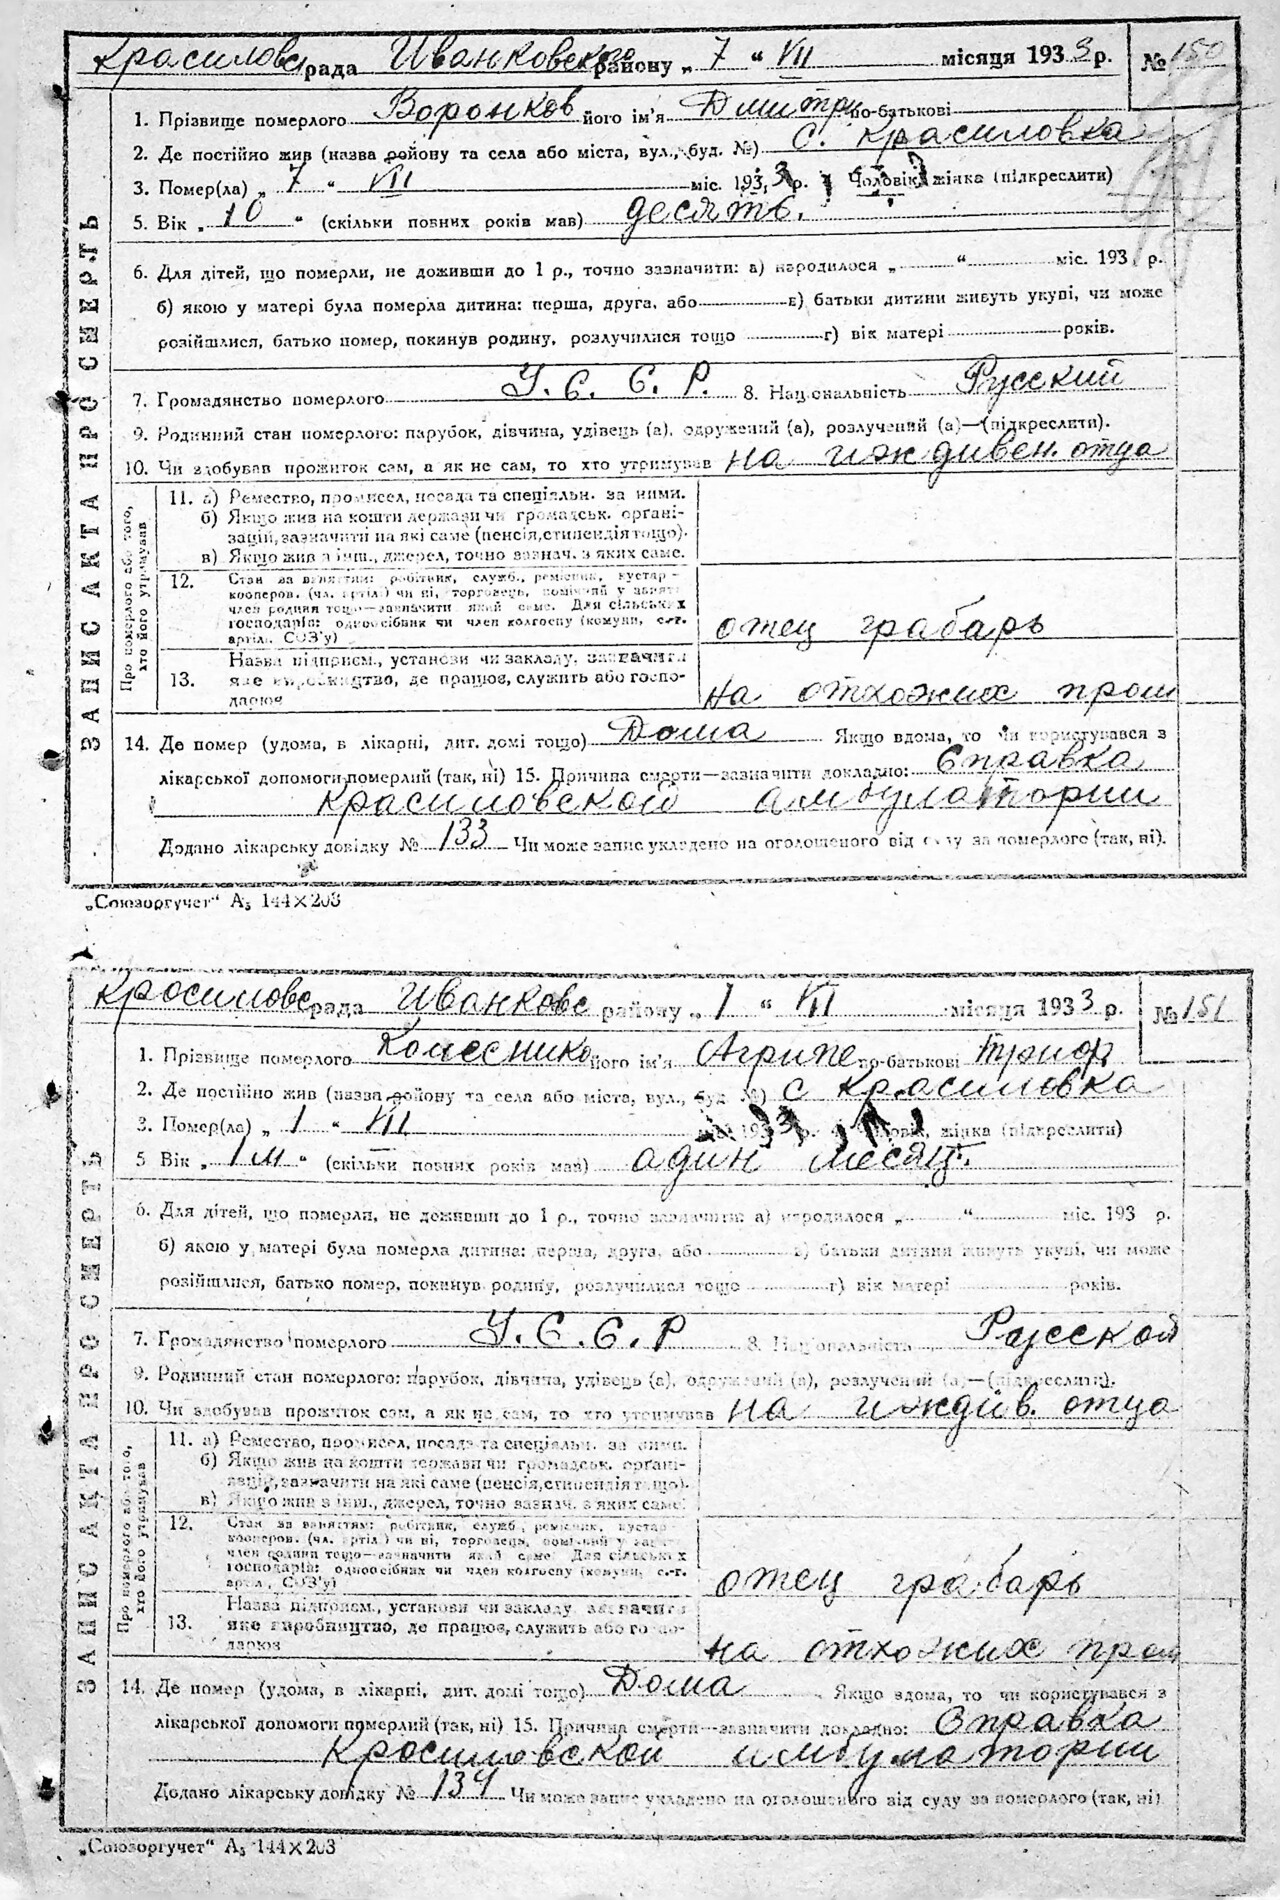 Красиловс рада Иванковское району „ 7 “ VII місяця 1933 р. № 150
1. Прізвище померлого Воронков його ім'я Дмитри по-батькові
2. Де постійно жив (назва району та села або міста, вул., буд. №) с. Красиловка
3. Помер(ла) „ 7 “ VII міс. 1933 р. Чоловік, жінка (підкреслити)
5. Вік „ 10 “ (скільки повних років мав) десять.
6. Для дітей, що померли, не доживши до 1 р., точно зазначити: а) народилося „ “ міс. 193 р.
б) якою у матері була померла дитина: перша, друга, або в) батьки дитини живуть укупі, чи може
розійшлися, батько помер, покинув родину, розлучилися тощо г) вік матері років.
7. Громадянство померлого У. С. С. Р. 8. Національність Русский
9. Родинний стан померлого: парубок, дівчина, удівець (а), одружений (а), розлучений (а)—(підкреслити).
10. Чи здобував прожиток сам, а як не сам, то хто утримував на иждивен. отца
ЗАПИС АКТА ПРО СМЕРТЬ
Про померлого або того, хто його утримував
11. а) Ремество, промисел, посада та спеціяльн. за ними.
б) Якщо жив на кошти держави чи громадськ. органі-
зацій, зазначити на які саме (пенсія, стипендія тощо).
в) Якщо жив з інш., джерел, точно зазнач. з яких саме.
12. Стан за заняттям: робітник, служб., ремісник, кустар-
кооперов. (чл. артілі) чи ні, торговець, помічний у занят.
член родини тощо—зазначити який саме. Для сільських
господарів: одноосібник чи член колгоспу (комуни, с.-г.
артіл. СОЗ'у) отец грабарь
Назва підприєм., установи чи закладу, зазначити
13. яке виробництво, де працює, служить або госпо-
дарює на отхожих пром
14. Де помер (удома, в лікарні, дит. домі тощо) Дома Якщо вдома, то чи користувався з
лікарської допомоги померлий (так, ні) 15. Причина смерти—зазначити докладно: Справка
Красиловской амбулатории
Додано лікарську довідку № 133 Чи може запис укладено на оголошеного від суду за померлого (так, ні).
„Союзоргучет“ А₅ 144×203
Кросиловс рада Иванковс району „ 1 “ VII місяця 1933 р. № 151
1. Прізвище померлого Колеснико його ім'я Агрипе по-батькові Триф
2. Де постійно жив (назва району та села або міста, вул., буд. №) с Красиловка
3. Помер(ла) „ 1 “ VII міс. 1933 р. Чоловік, жінка (підкреслити)
5 Вік „ 1 м “ (скільки повних років мав) адин месяц.
6. Для дітей, що померли, не доживши до 1 р., точно зазначити: а) народилося „ “ міс. 193 р.
б) якою у матері була померла дитина: перша, друга, або в) батьки дитини живуть укупі, чи може
розійшлися, батько помер, покинув родину, розлучилися тощо г) вік матері років.
7. Громадянство померлого У. С. С. Р 8. Національність Русской
9. Родинний стан померлого: парубок, дівчина, удівець (а), одружений (а), розлучений (а)—(підкреслити).
10. Чи здобував прожиток сам, а як не сам, то хто утримував на иждив. отца
ЗАПИС АКТА ПРО СМЕРТЬ
Про померлого або того, хто його утримував
11. а) Ремество, промисел, посада та спеціяльн. за ними.
б) Якщо жив на кошти держави чи громадськ. органі-
зацій, зазначити на які саме (пенсія, стипендія тощо).
в) Якщо жив з інш., джерел, точно зазнач. з яких саме.
12. Стан за заняттям: робітник, служб., ремісник, кустар-
кооперов. (чл. артіл.) чи ні, торговець, помічний у занят.
член родини тощо—зазначити який саме Для сільських
господарів: одноосібник чи член колгоспу (комуни, с.-г.
артіл., СОЗ'у) отец грабарь
Назва підприєм., установи чи закладу, зазначити
13. яке виробництво, де працює, служить або госпо-
дарює на отхожих пром
14. Де помер (удома, в лікарні, дит. домі тощо) Дома Якщо вдома, то чи користувався з
лікарської допомоги померлий (так, ні) 15. Причина смерти—зазначити докладно: Справка
Кросиловской амбулатории
Додано лікарську довідку № 134 Чи може запис укладено на оголошеного від суду за померлого (так, ні)
„Союзоргучет“ А₅ 144×203